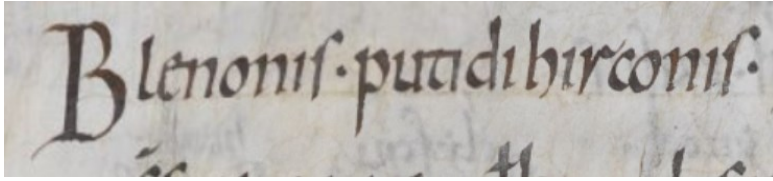 Blenonis· putidi hirconis·